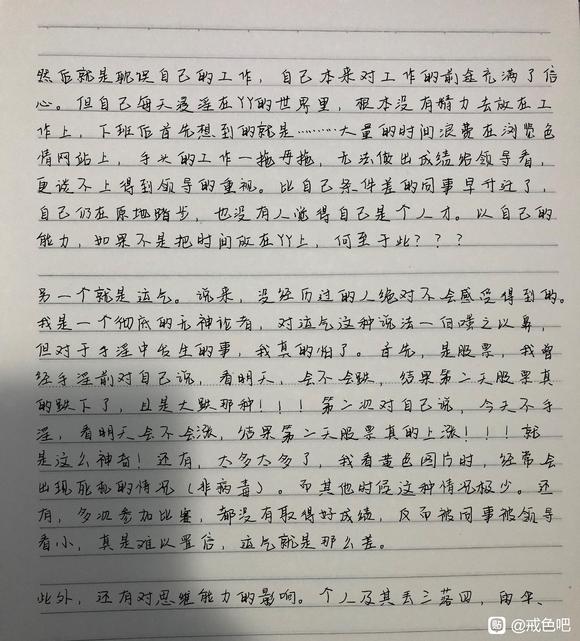 然后就是耽误自己的工作，自己本来对工作的前途充满了信
心。但自己每天浸淫在YY的世界里，根本没有精力去放在工
作上，下班后首先想到的就是………大量的时间浪费在浏览色
情网站上，手头的工作一拖再拖，无法做出成绩给领导看，
更谈不上得到领导的重视。比自己条件差的同事早升迁了，
自己仍在原地踏步，也没有人觉得自己是个人才。以自己的
能力，如果不是把时间放在YY上，何至于此？？？
另一个就是运气。说来，没经历过的人绝对不会感受得到的。
我是一个彻底的无神论者，对运气这种说法一向嗤之以鼻，
但对于手淫中发生的事，我真的怕了。首先，是股票，我曾
经手淫前对自己说，看明天，会不会跌，结果第二天股票真
的跌下了，且是大跌那种！！！第二次对自己说，今天不手
淫，看明天会不会涨，结果第二天股票真的上涨！！！就
是这么神奇！还有，太多太多了，我看黄色图片时，经常会
出现死机的情况（非病毒）。而其他时候这种情况极少。还
有，多次参加比赛，都没有取得好成绩，反而被同事被领导
看小，真是难以置信，运气就是那么差。
此外，还有对思维能力的影响。个人及其丢三落四，雨伞、
贴 @戒色吧